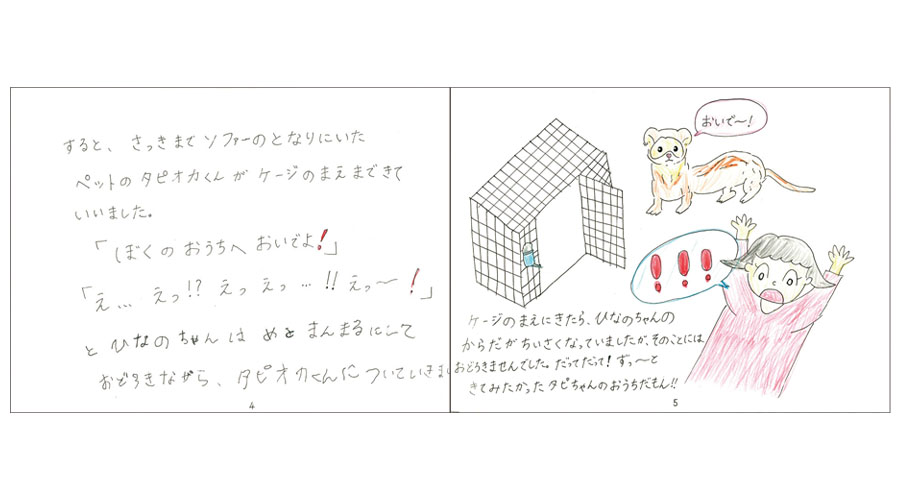 すると、さっきまでソファーのとなりにいた
ペットのタピオカくんがケージのまえまできて
いいました。
「ぼくのおうちへおいでよ!」
「え… えっ!? えっえっ…!! えっ〜!」
とひなのちゃんはめをまんまるにして
おどろきながら、タピオカくんについていきまし
4
おいで〜!
!!!
ケージのまえにきたら、ひなのちゃんの
からだがちいさくなっていましたが、そのことには
おどろきませんでした。だってだって!ずっ〜と
きてみたかったタピちゃんのおうちだもん!!
5